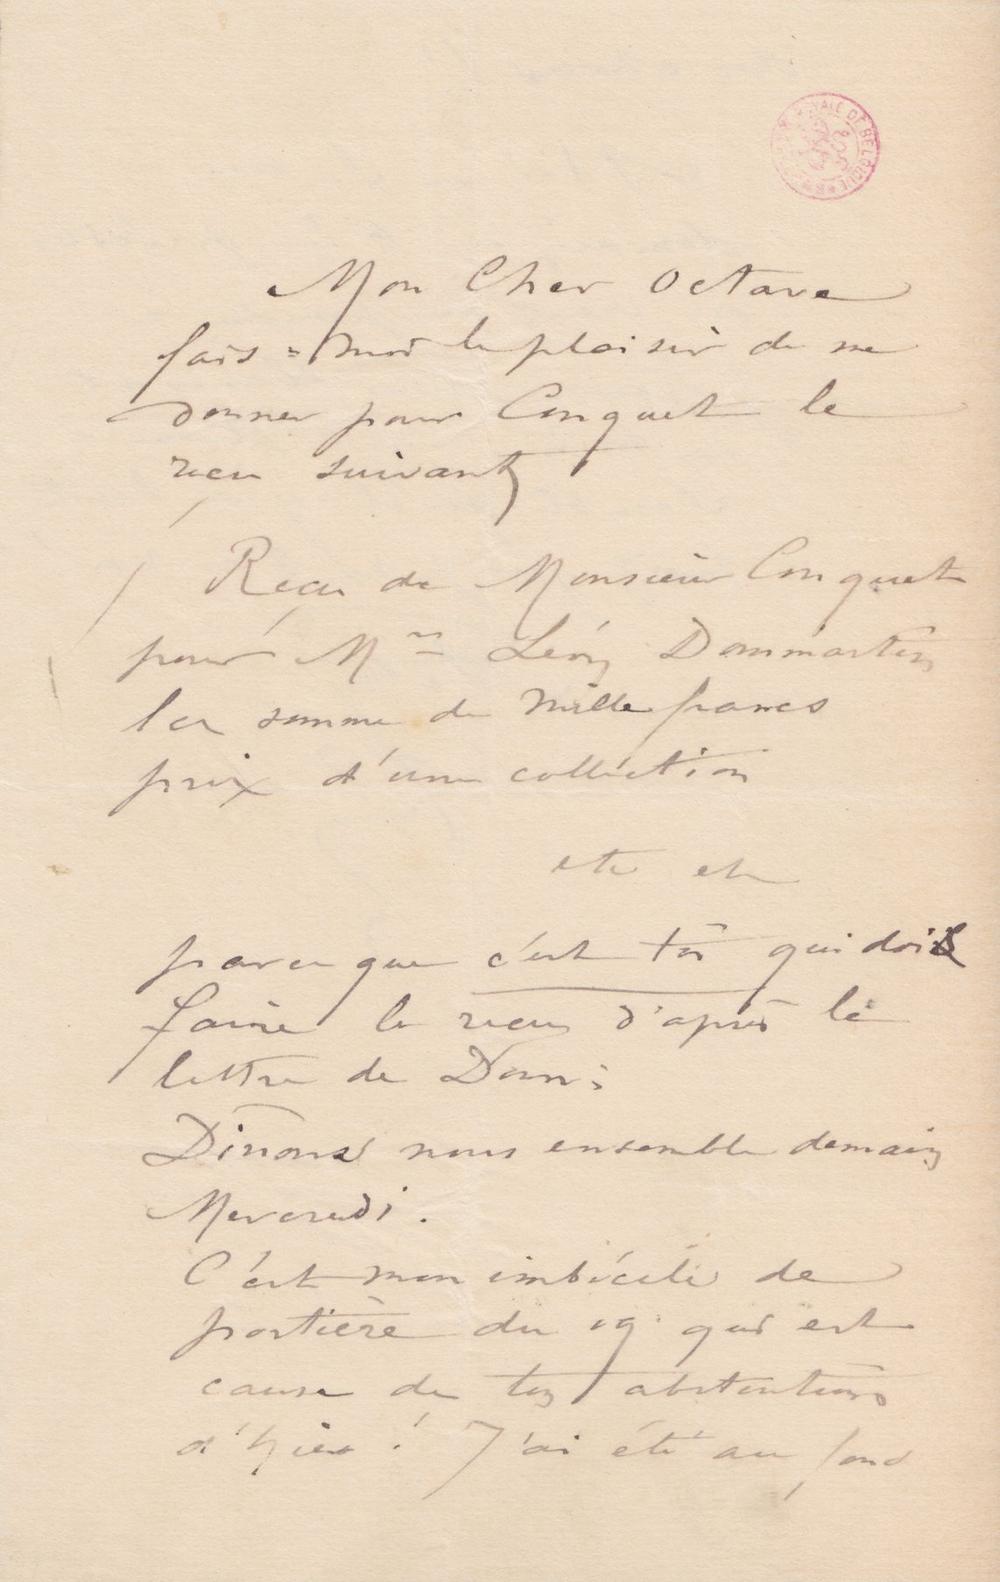 YALE DE BELGIQUE
Mon Cher Octave
fais=moi le plaisir de me
donner pour Conquet le
reçu suivant
Reçu de Monsieur Conquet
pour Mr Léon Dommartin
la somme de mille francs
prix d'une collection
etc etc
parce que c'est toi qui dois
faire le reçu d'après la
lettre de Dom:
Dinons nous ensemble demain
Mercredi.
C'est mon imbécile de
portière du 19 qui est
cause de ton abstention
d'hier! J'ai été au fond